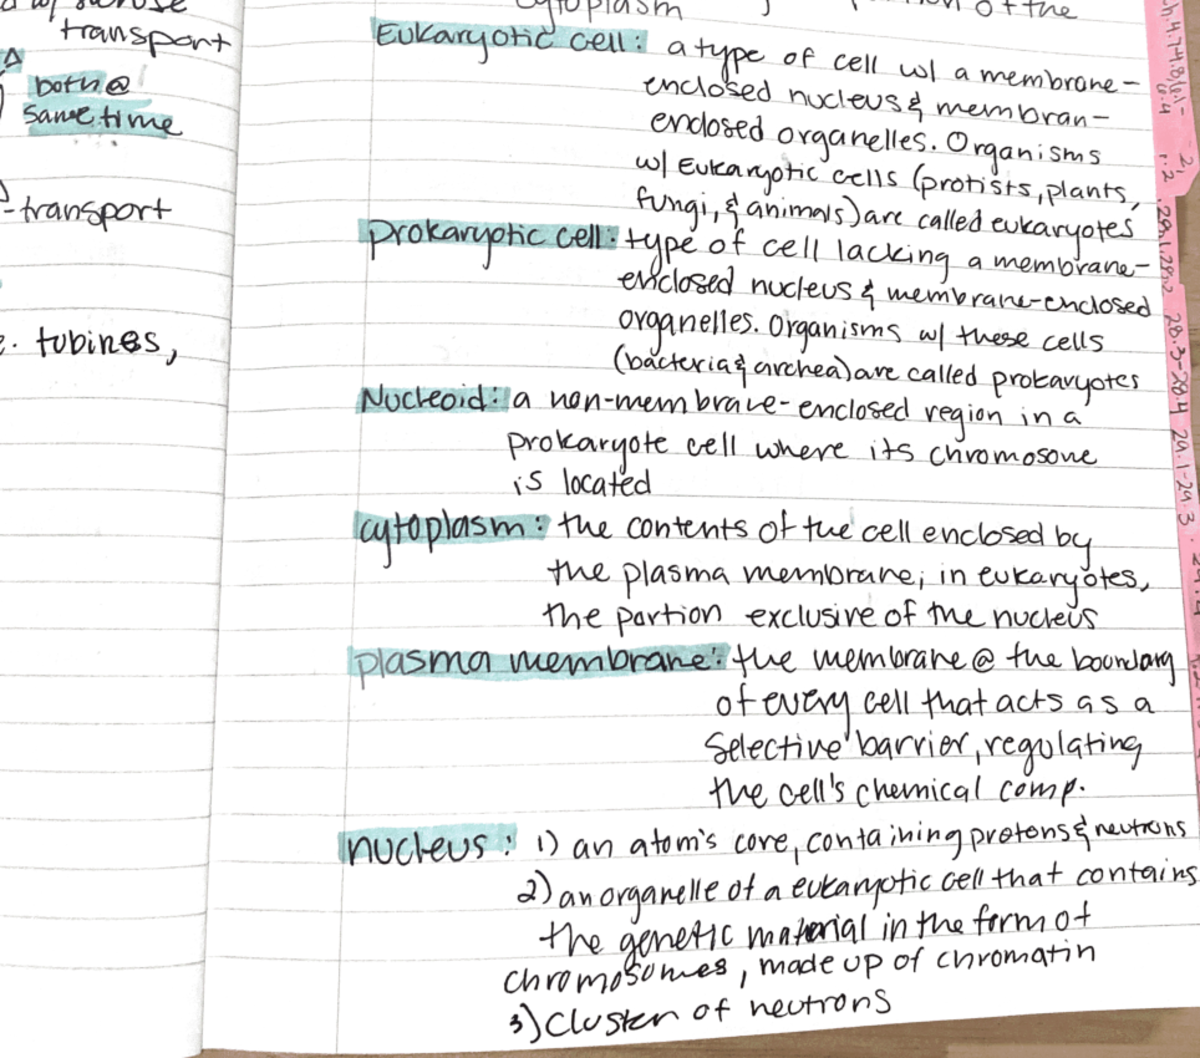 transport
both @
same time
-transport
tubines,
cytoplasm of the
Eukaryotic cell: a type of cell w/ a membrane-
enclosed nucleus & membran-
enclosed organelles. Organisms
w/ Eukaryotic cells (protists, plants,
fungi, & animals) are called eukaryotes
prokaryotic cell: type of cell lacking a membrane-
enclosed nucleus & membrane-enclosed
organelles. Organisms w/ these cells
(bacteria & archea) are called prokaryotes
Nucleoid: a non-membrane-enclosed region in a
prokaryote cell where its chromosone
is located
cytoplasm: the contents of the cell enclosed by
the plasma membrane; in eukaryotes,
the portion exclusive of the nucleus
plasma membrane: the membrane @ the boundary
of every cell that acts as a
selective barrier, regulating
the cell's chemical comp.
nucleus: 1) an atom's core, containing protons & neutrons
2) an organelle of a eukaryotic cell that contains
the genetic material in the form of
chromosomes, made up of chromatin
3) cluster of neutrons
28.3-28.4 29.1-29.3